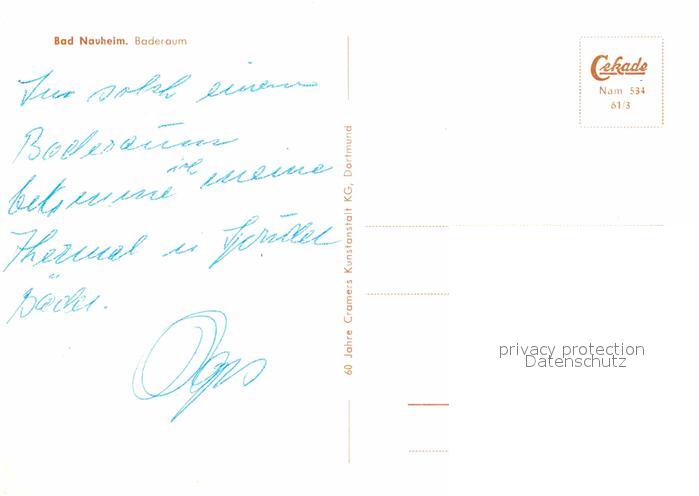 Bad Nauheim. Baderaum
Cekade
Nam 534
61/3
In solch einem
Baderaum
bekomme ich meine
Thermal u Sprudel
Bäder.
60 Jahre Cramers Kunstanstalt KG, Dortmund
privacy protection
Datenschutz